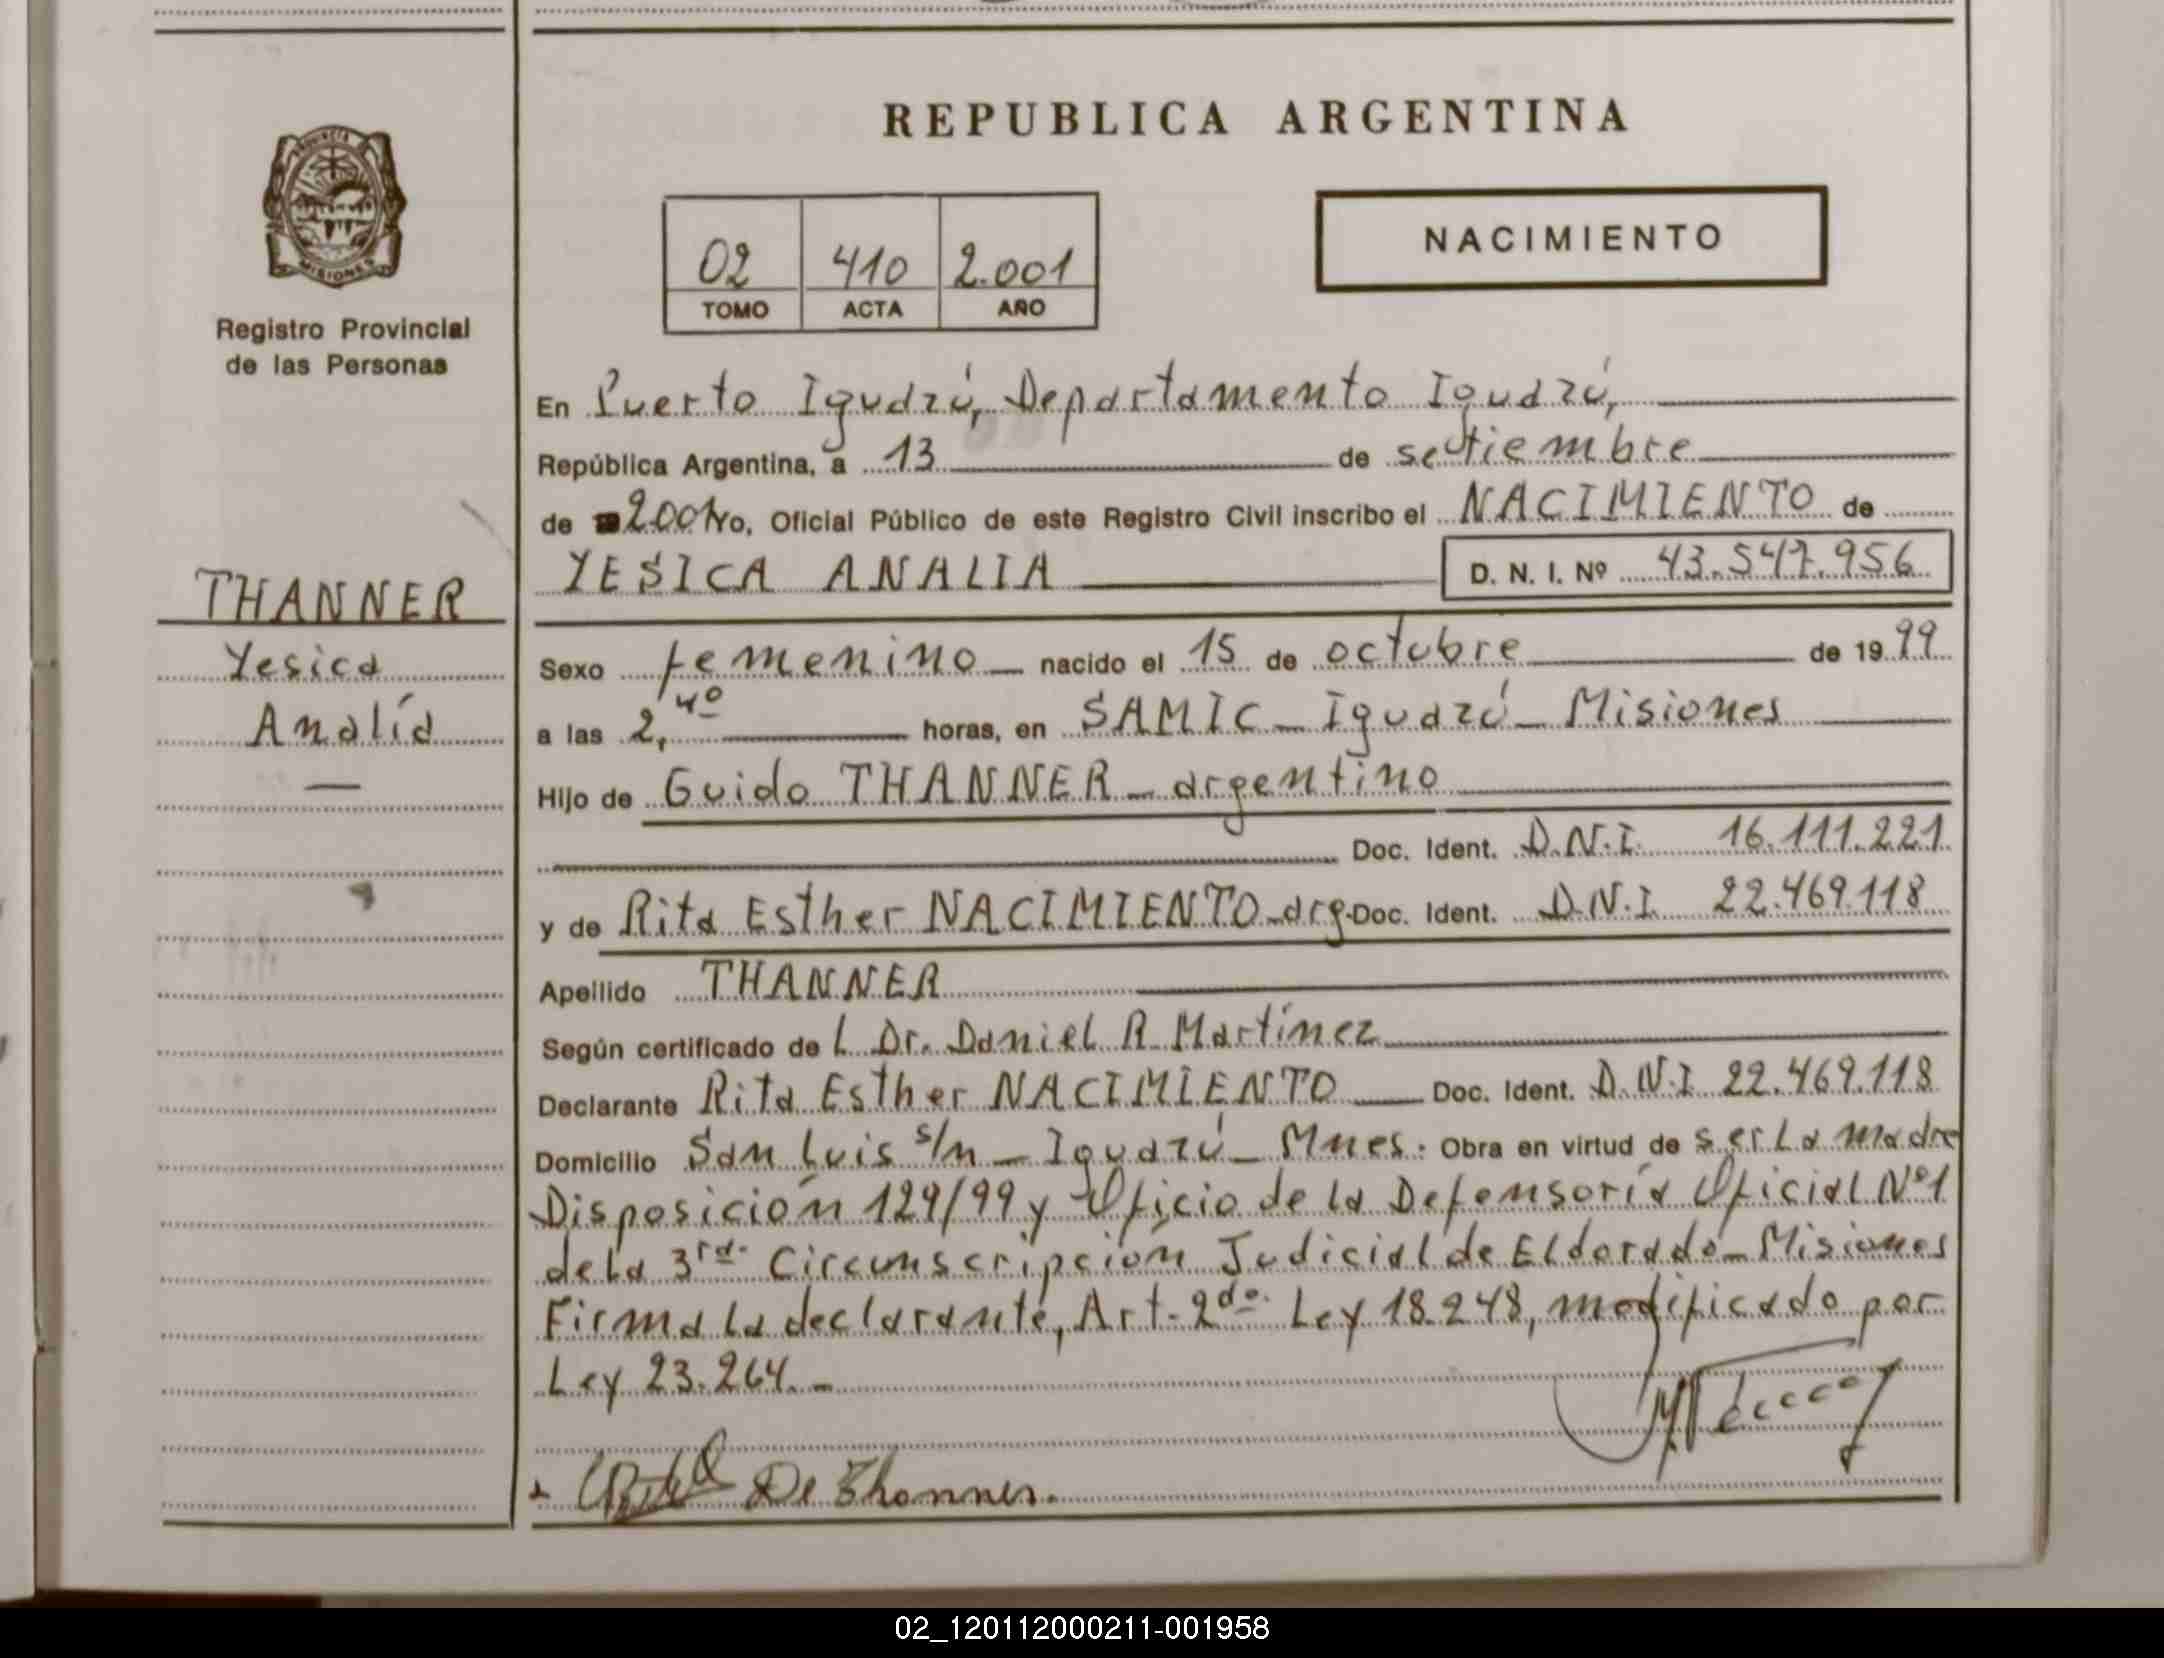 REPUBLICA ARGENTINA
PROVINCIA DE
MISIONES
Registro Provincial
de las Personas
02 410 2.001
TOMO ACTA AÑO
NACIMIENTO
En Puerto Iguazú, Departamento Iguazú,
República Argentina, a 13 de setiembre
de 2001 Yo, Oficial Público de este Registro Civil inscribo el NACIMIENTO de
YESICA ANALIA D. N. I. Nº 43.547.956
THANNER
Yesica
Analía
Sexo femenino nacido el 15 de octubre de 1999
a las 2,40 horas, en SAMIC - Iguazú - Misiones
Hijo de Guido THANNER - argentino
Doc. Ident. D.N.I. 16.111.221
y de Rita Esther NACIMIENTO - arg. Doc. Ident. D.N.I. 22.469.118
Apellido THANNER
Según certificado de L Dr. Daniel R. Martínez
Declarante Rita Esther NACIMIENTO Doc. Ident. D.N.I. 22.469.118
Domicilio San Luis s/n - Iguazú - Mnes. Obra en virtud de ser la madre
Disposición 129/99 y Oficio de la Defensoría Oficial Nº1
de la 3ra. Circunscripción Judicial de Eldorado - Misiones
Firma la declarante, Art. 2do. Ley 18.248, modificado por
Ley 23.264. -
De Thanner.
02_120112000211-001958